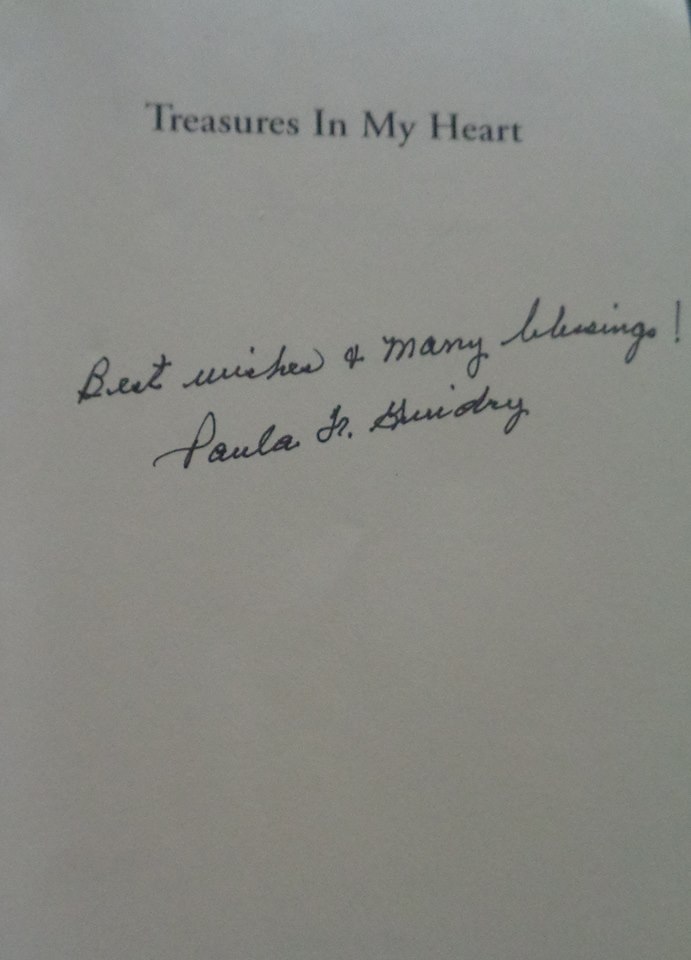 Treasures In My Heart
Best wishes & Many blessings!
Paula Fr. Guidry